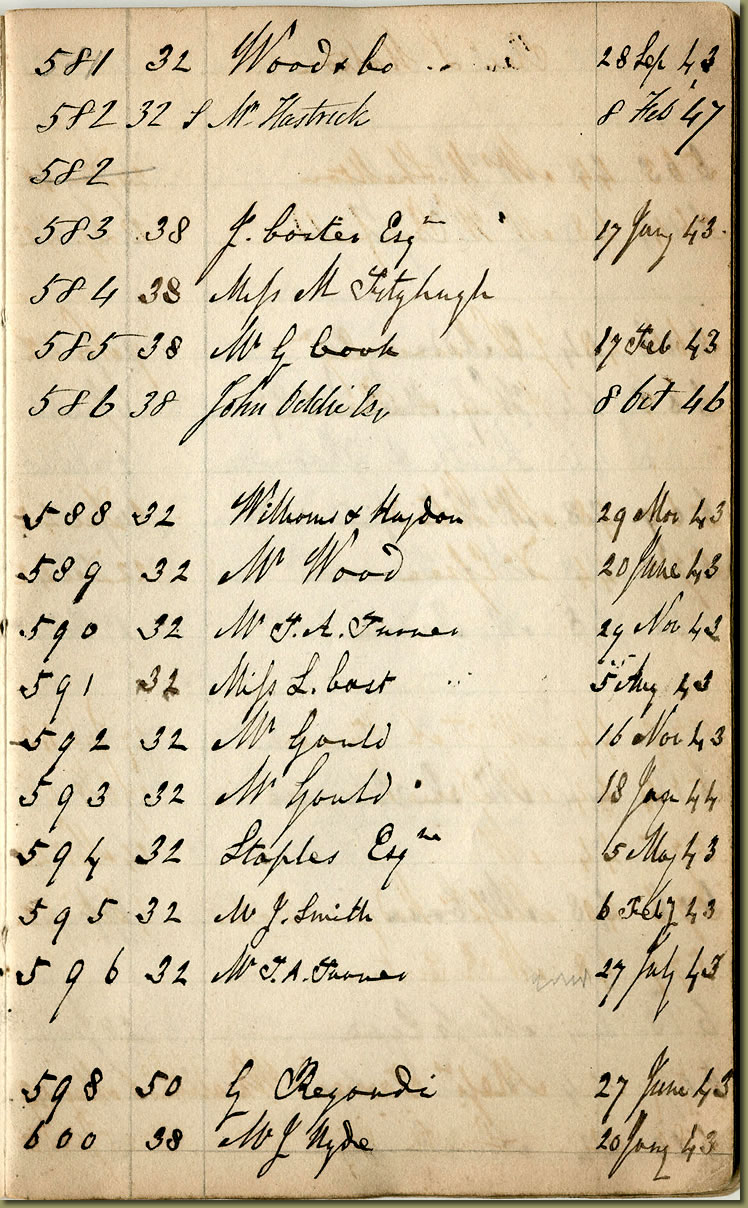 581 32 Wood & Co 28 Sep 43
582 32 S Mr Hastrick 8 Feb 47
582
583 38 J. Coster Esqr 17 Jany 43
584 38 Miss M Fitzhugh
585 38 Mr G Cook 17 Feb 43
586 38 John Oddie Esq 8 Oct 46
588 32 Williams & Haydon 29 Mar 43
589 32 Mr Wood 20 June 43
590 32 Mr T. A. Turner 29 Nov 42
591 32 Miss L. Cast 5 Aug 43
592 32 Mr Gould 16 Nov 43
593 32 Mr Gould 18 Jan 44
594 32 Staples Esqre 5 May 43
595 32 Mr J. Smith 6 Feby 43
596 32 Mr T. A. Turner 27 July 43
598 50 G Regondi 27 June 43
600 38 Mr J Hyde 20 Jany 43